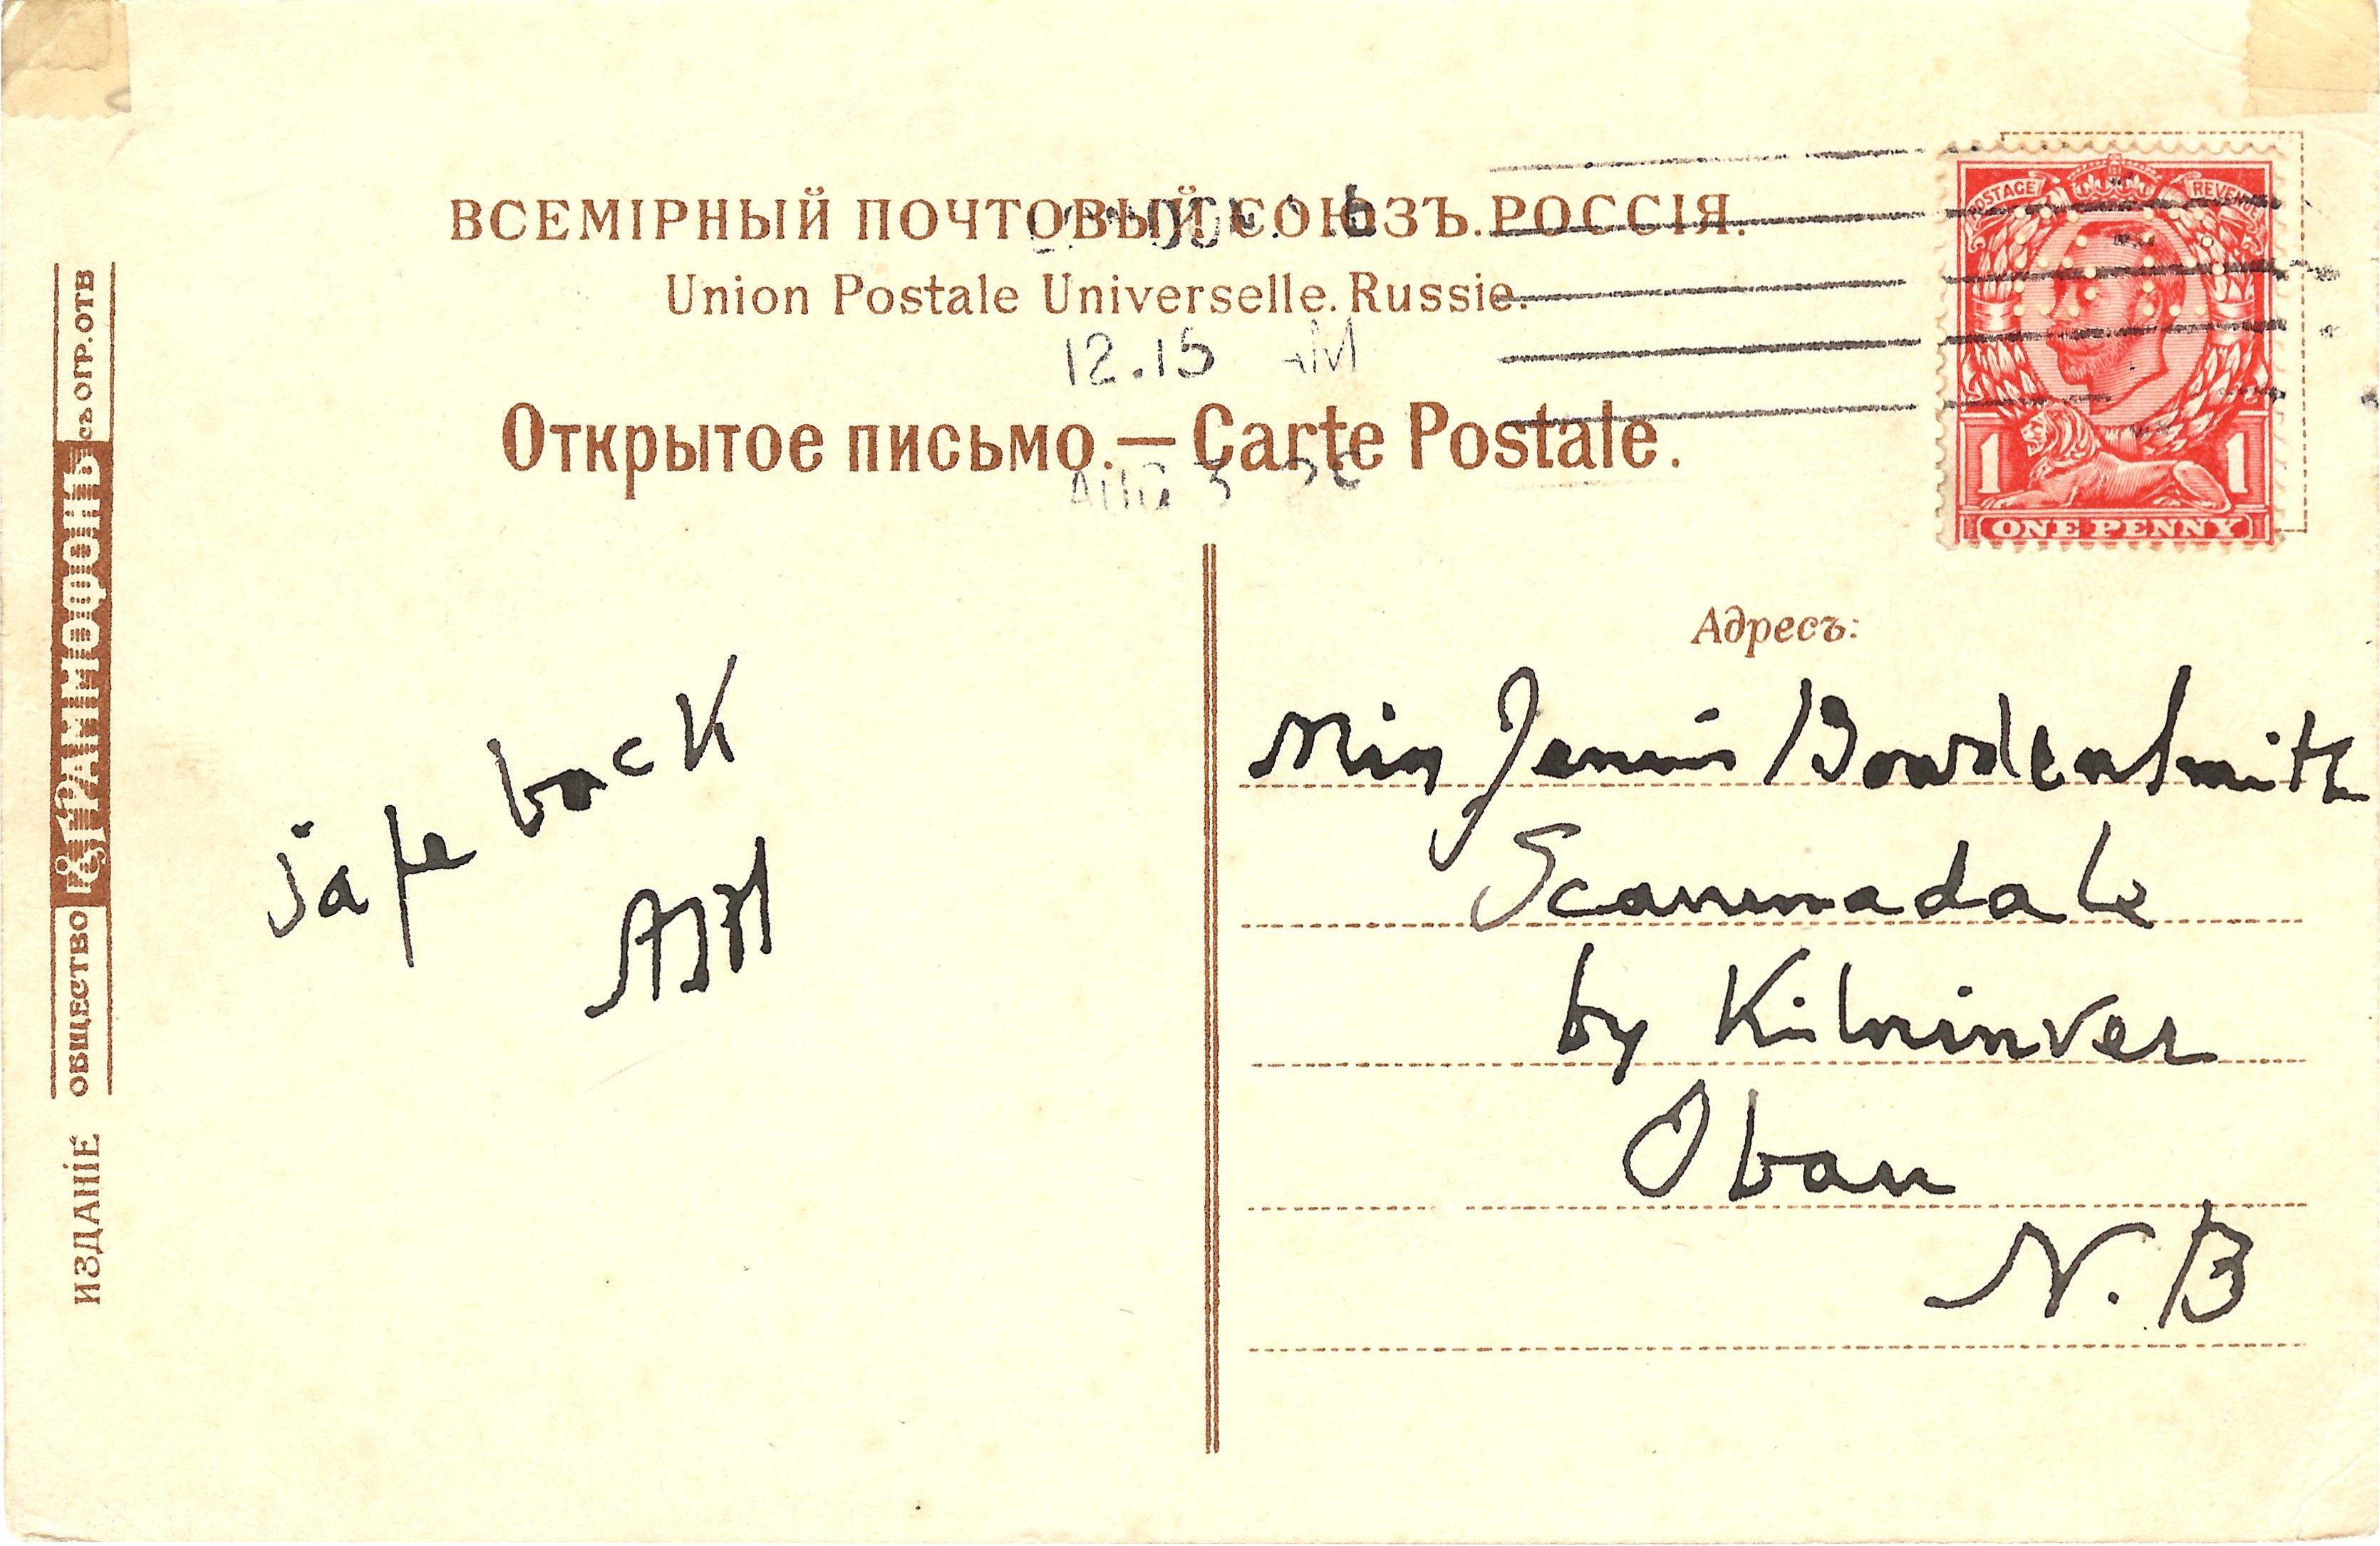 ВСЕМІРНЫЙ ПОЧТОВЫЙ СОЮЗЪ. РОССІЯ.
Union Postale Universelle. Russie.
12.15 AM
Открытое письмо. — Carte Postale.
AUG 3
POSTAGE REVENUE
1 1
ONE PENNY
Адресъ:
Miss Bowden Smith
Scammadale
by Kilninver
Oban
N. B
safe back
ИЗДАНІЕ ОБЩЕСТВО ГРАММОФОНЪ съ ОГР. ОТВ